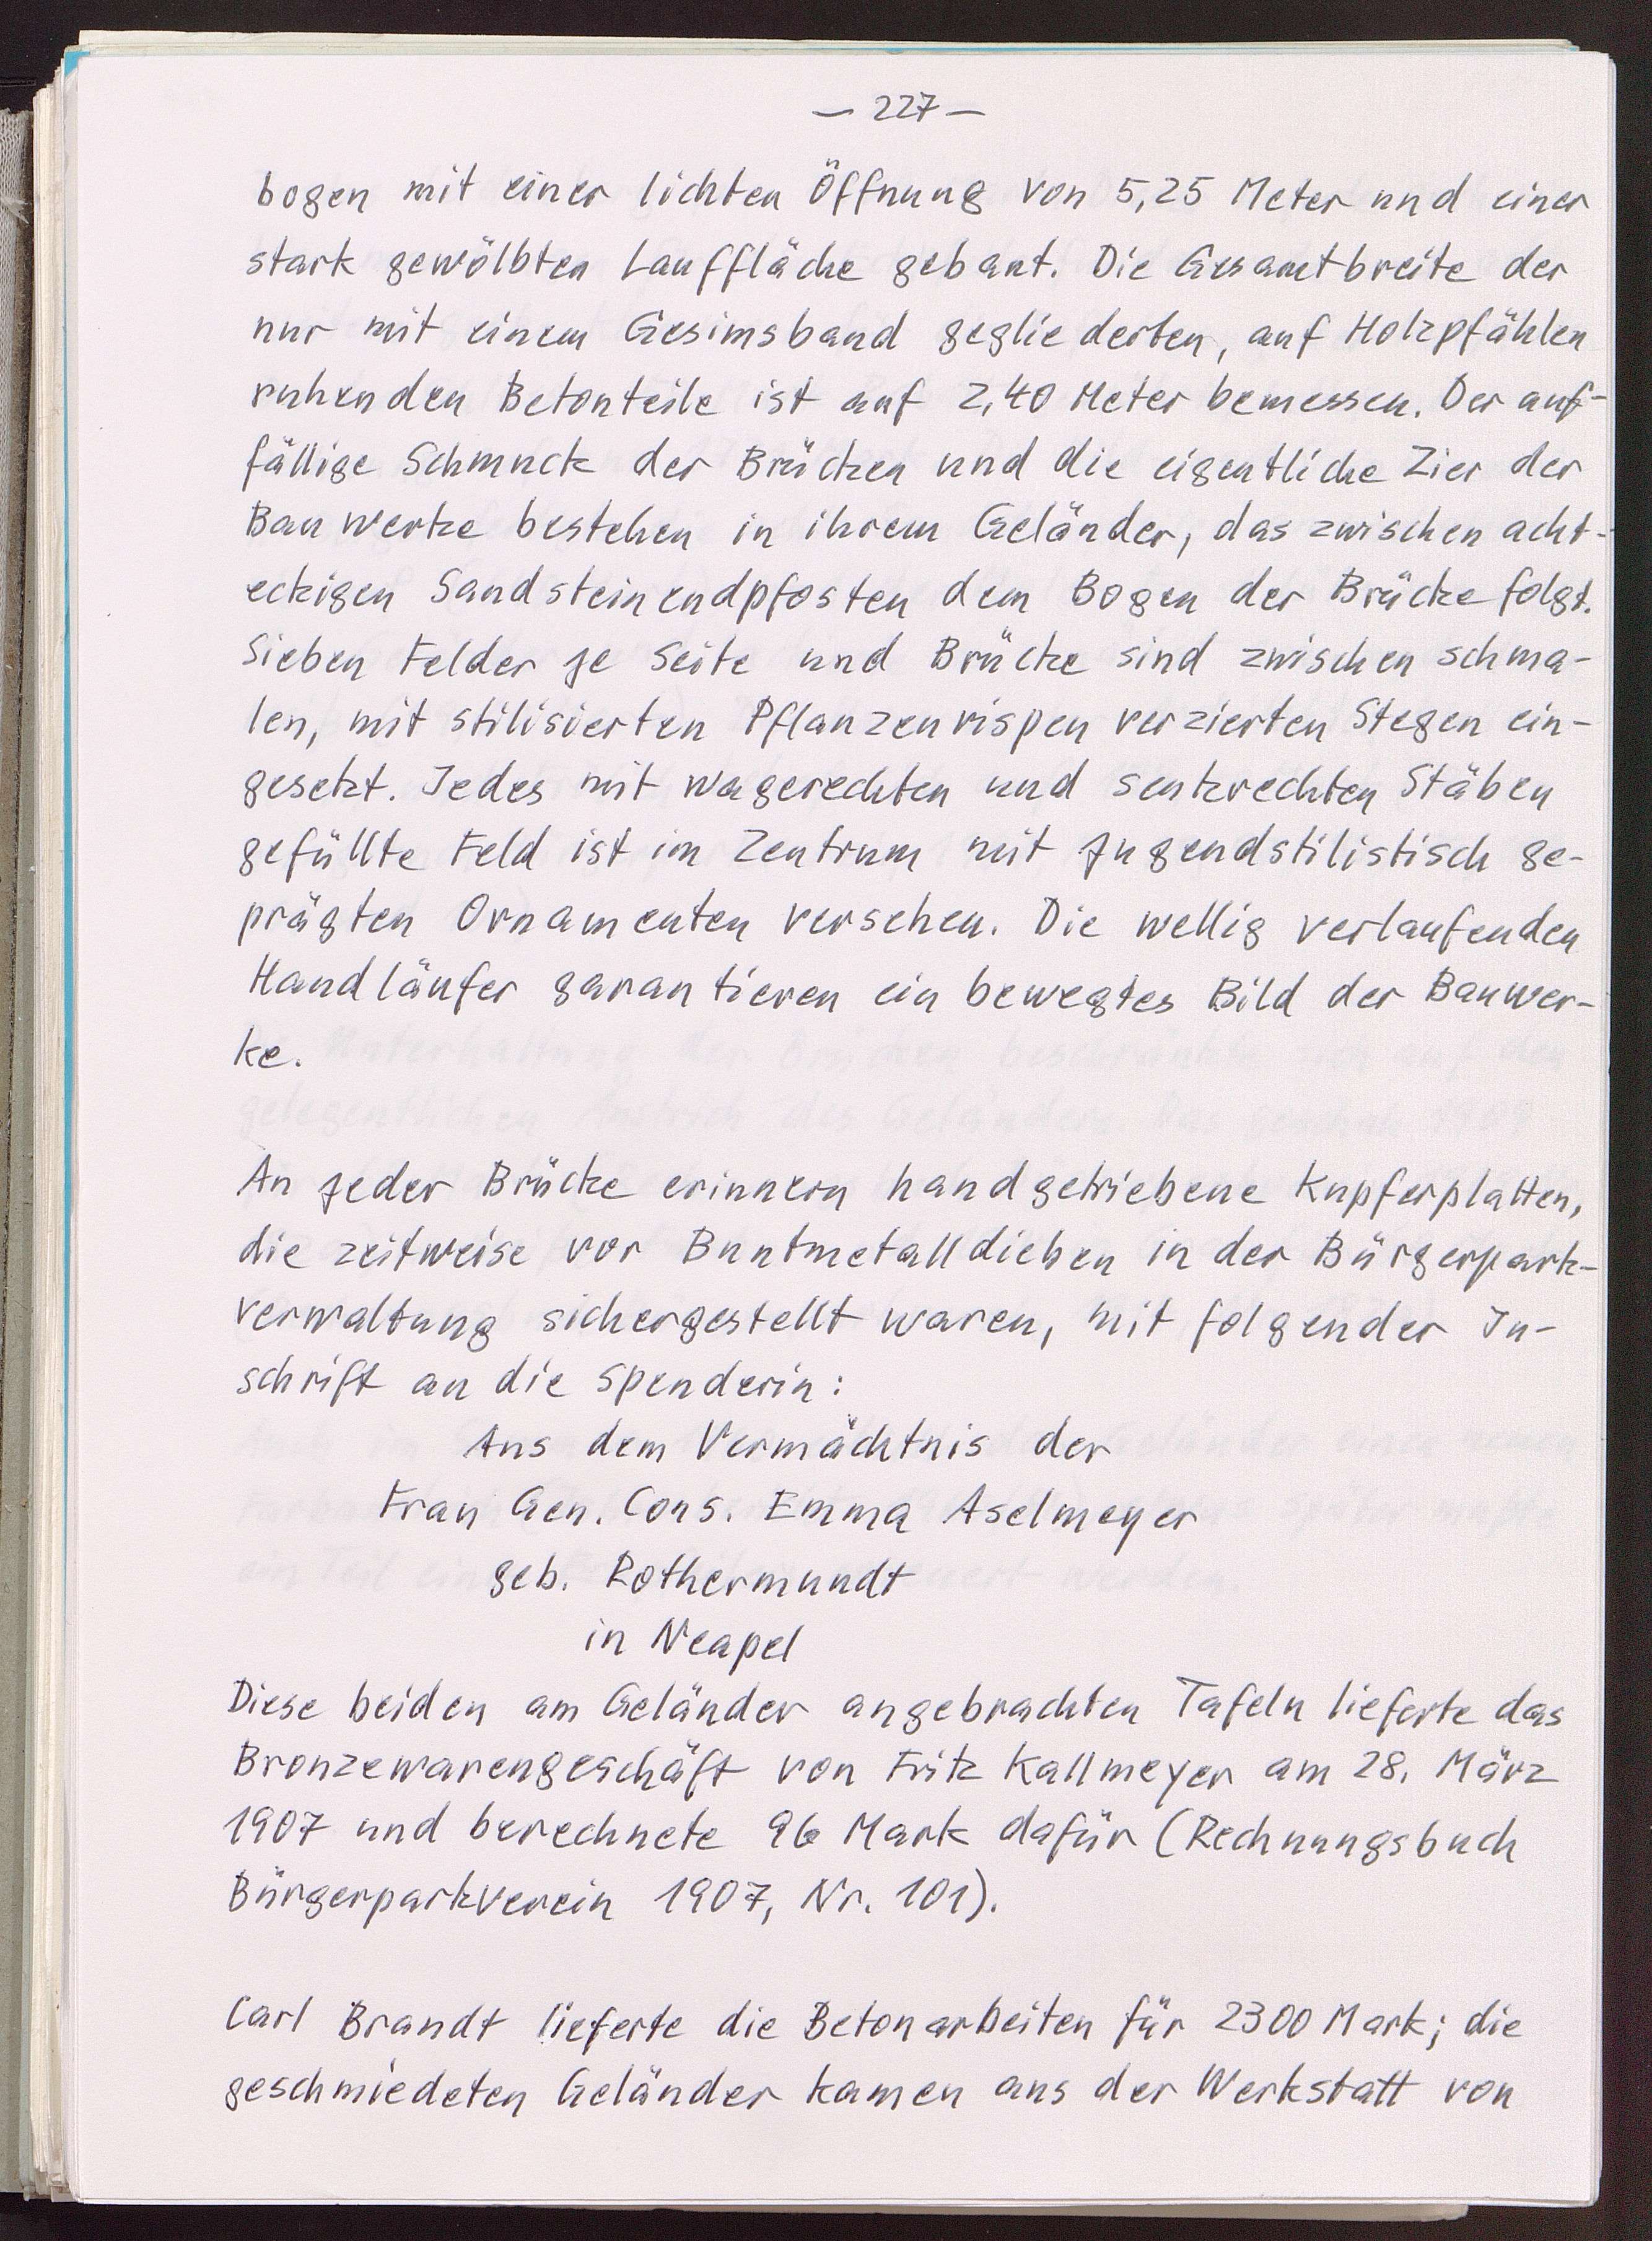 — 227 —
bogen mit einer lichten Öffnung von 5,25 Meter und einer
stark gewölbten Lauffläche gebaut. Die Gesamtbreite der
nur mit einem Gesimsband gegliederten, auf Holzpfählen
ruhenden Betonteile ist auf 2,40 Meter bemessen. Der auf-
fällige Schmuck der Brücken und die eigentliche Zier der
Bauwerke bestehen in ihrem Geländer, das zwischen acht-
eckigen Sandsteinendpfosten dem Bogen der Brücke folgt.
Sieben Felder je Seite und Brücke sind zwischen schma-
len, mit stilisierten Pflanzenrispen verzierten Stegen ein-
gesetzt. Jedes mit wagerechten und senkrechten Stäben
gefüllte Feld ist im Zentrum mit jugendstilistisch ge-
prägten Ornamenten versehen. Die wellig verlaufenden
Handläufer garantieren ein bewegtes Bild der Bauwer-
ke.
An jeder Brücke erinnern handgetriebene Kupferplatten,
die zeitweise vor Buntmetalldieben in der Bürgerpark-
verwaltung sichergestellt waren, mit folgender In-
schrift an die Spenderin:
Aus dem Vermächtnis der
Frau Gen. Cons. Emma Aselmeyer
geb. Rothermundt
in Neapel
Diese beiden am Geländer angebrachten Tafeln lieferte das
Bronzewarengeschäft von Fritz Kallmeyer am 28. März
1907 und berechnete 96 Mark dafür (Rechnungsbuch
Bürgerparkverein 1907, Nr. 101).
Carl Brandt lieferte die Betonarbeiten für 2300 Mark; die
geschmiedeten Geländer kamen aus der Werkstatt von